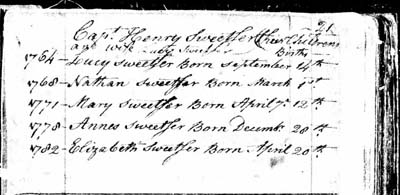 21
Capt. Henry Sweetser Their Childrens
and wife Lucy Sweetser Births
1764 - Lucy Sweetser Born September 14th
1768 - Nathan Sweetser Born March 1st
1771 - Mary Sweetser Born April 12th
1778 - Annes Sweetser Born Decembr 28th
1782 - Elizabeth Sweetser Born April 20th